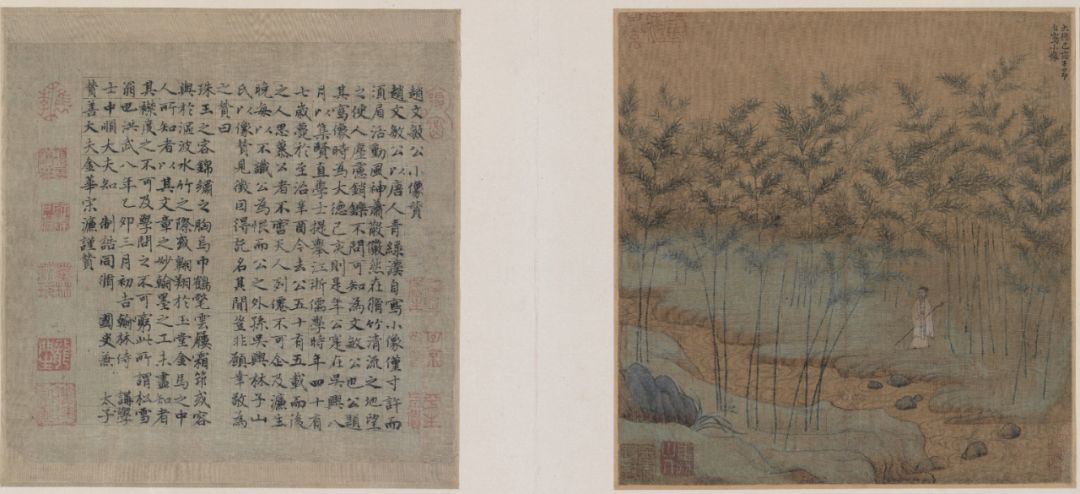 大德己亥子昂
自寫小像
趙文敏公小像贊
趙文敏公以唐人青綠法自寫小像僅寸許而
須眉活動風神蕭散儼然在脩竹清流之地望
之使人塵慮銷鑠不問可知為文敏公也公題
其寫像時為大德己亥則是年公寔在吳興八
月以集賢直學士提舉江浙儒學時年四十有
七歲薨於至治辛酉今去公五十有五載而後
之人思慕公者不啻天人列僊不可企及濂生
晚每以不識公為恨而公之外孫吳興林子山
氏以像贊見徵因得託名其間豈非願幸敬為
之贊曰
珠玉之容錦繡之胸烏巾鶴氅雲履霜筇或容
與於漚波水竹之際或翱翔於玉堂金馬之中
人所知者以其文章之妙翰墨之工未盡知者
其襟度之不可及學問之不可窮此所謂松雪
翁也洪武八年乙卯三月初吉翰林侍 講學
士中順大夫知 制誥同脩 國史兼 太子
贊善大夫金華宋濂謹贊